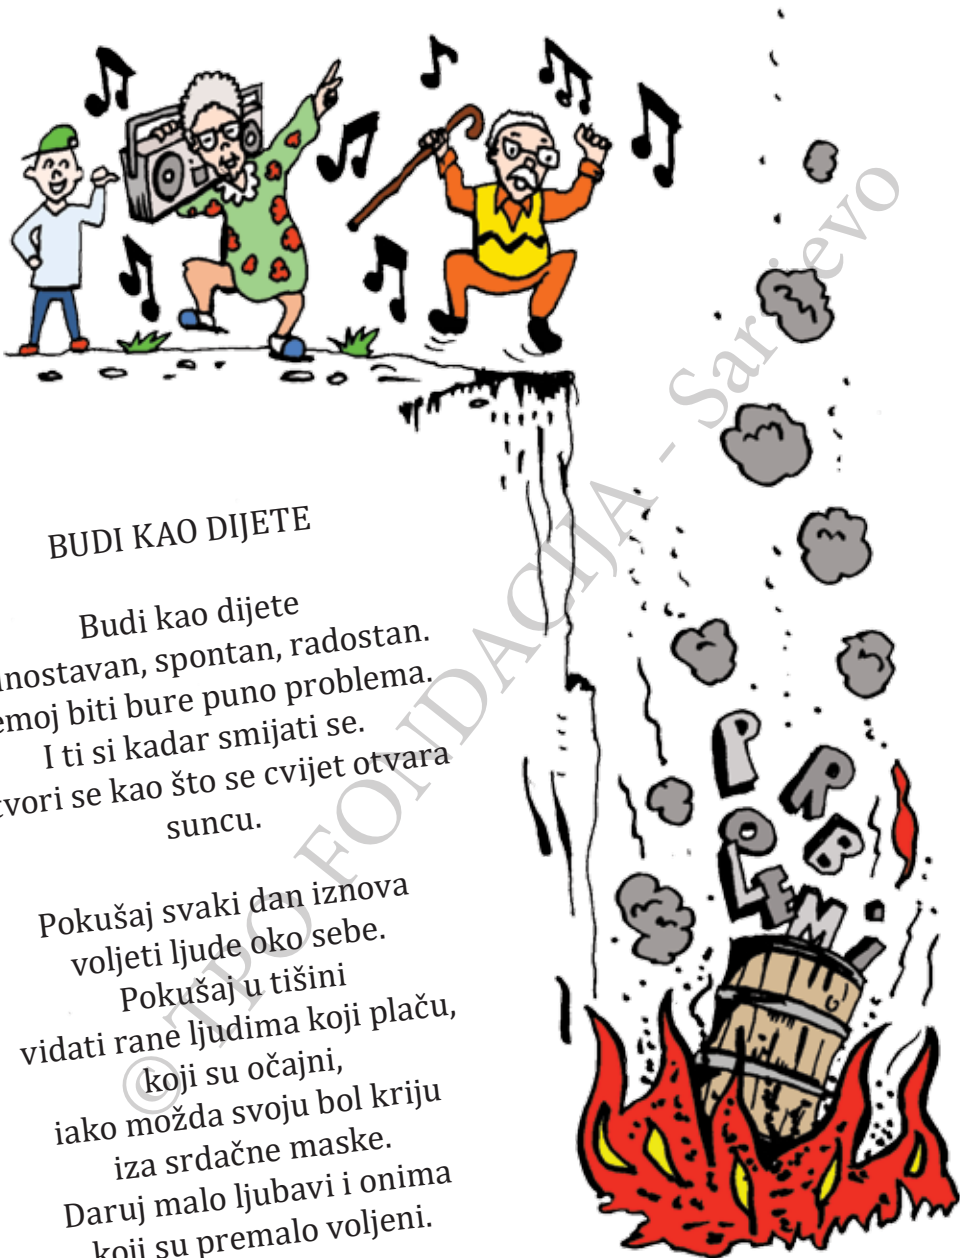 BUDI KAO DIJETE
Budi kao dijete
nostavan, spontan, radostan.
emoj biti bure puno problema.
I ti si kadar smijati se.
tvori se kao što se cvijet otvara
suncu.
Pokušaj svaki dan iznova
voljeti ljude oko sebe.
Pokušaj u tišini
vidati rane ljudima koji plaču,
koji su očajni,
iako možda svoju bol kriju
iza srdačne maske.
Daruj malo ljubavi i onima
koji su premalo voljeni.
PROBLEMI
© TPO FONDACIJA - Sarajevo